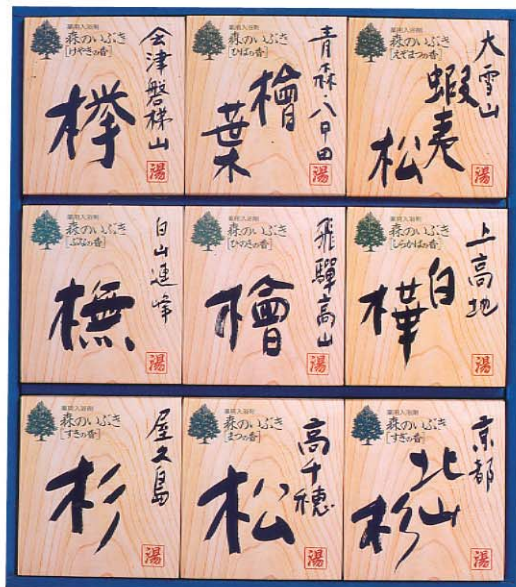 薬用入浴剤
森のいぶき
[けやきの香]
会津磐梯山
欅
湯
薬用入浴剤
森のいぶき
[ひばの香]
青森八甲田
檜葉
湯
薬用入浴剤
森のいぶき
[えぞまつの香]
大雪山
蝦夷松
湯
薬用入浴剤
森のいぶき
[ぶなの香]
白山連峰
橅
湯
薬用入浴剤
森のいぶき
[ひのきの香]
飛騨高山
檜
湯
薬用入浴剤
森のいぶき
[しらかばの香]
上高地
白樺
湯
薬用入浴剤
森のいぶき
[すぎの香]
屋久島
杉
湯
薬用入浴剤
森のいぶき
[まつの香]
高千穂
松
湯
薬用入浴剤
森のいぶき
[すぎの香]
京都
北山杉
湯